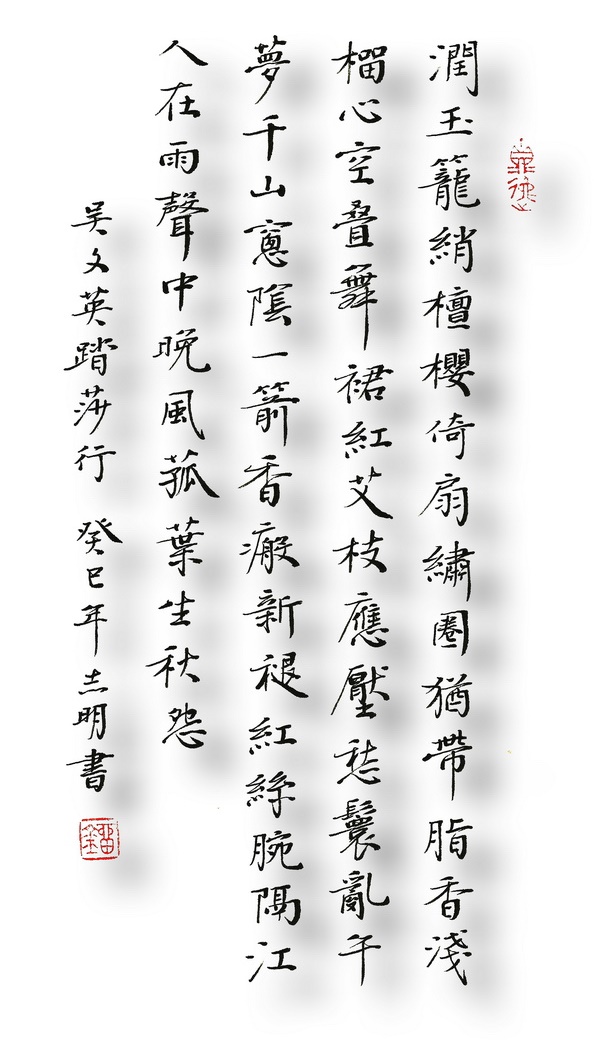 潤玉籠綃檀櫻倚扇繡圈猶帶脂香淺
榴心空叠舞裙紅艾枝應壓愁鬟亂午
夢千山窻陰一箭香瘢新褪紅絲腕隔江
人在雨聲中晚風菰葉生秋怨
吳文英踏莎行 癸巳年志明書